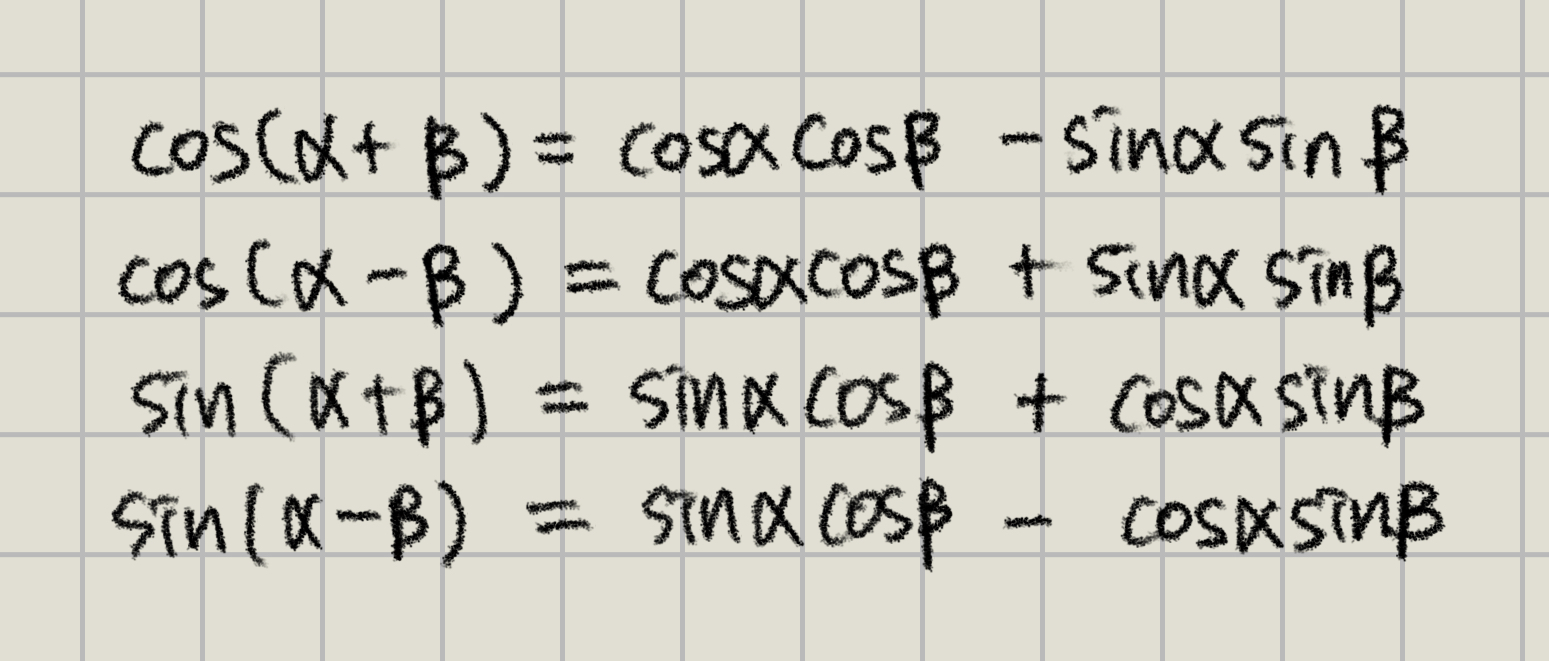 cos(α+ β) = cosα cosβ - sinα sin β
cos(α - β) = cosα cosβ + sinα sinβ
sin(α+β) = sinα cosβ + cosα sinβ
sin(α-β) = sinα cosβ - cosα sinβ